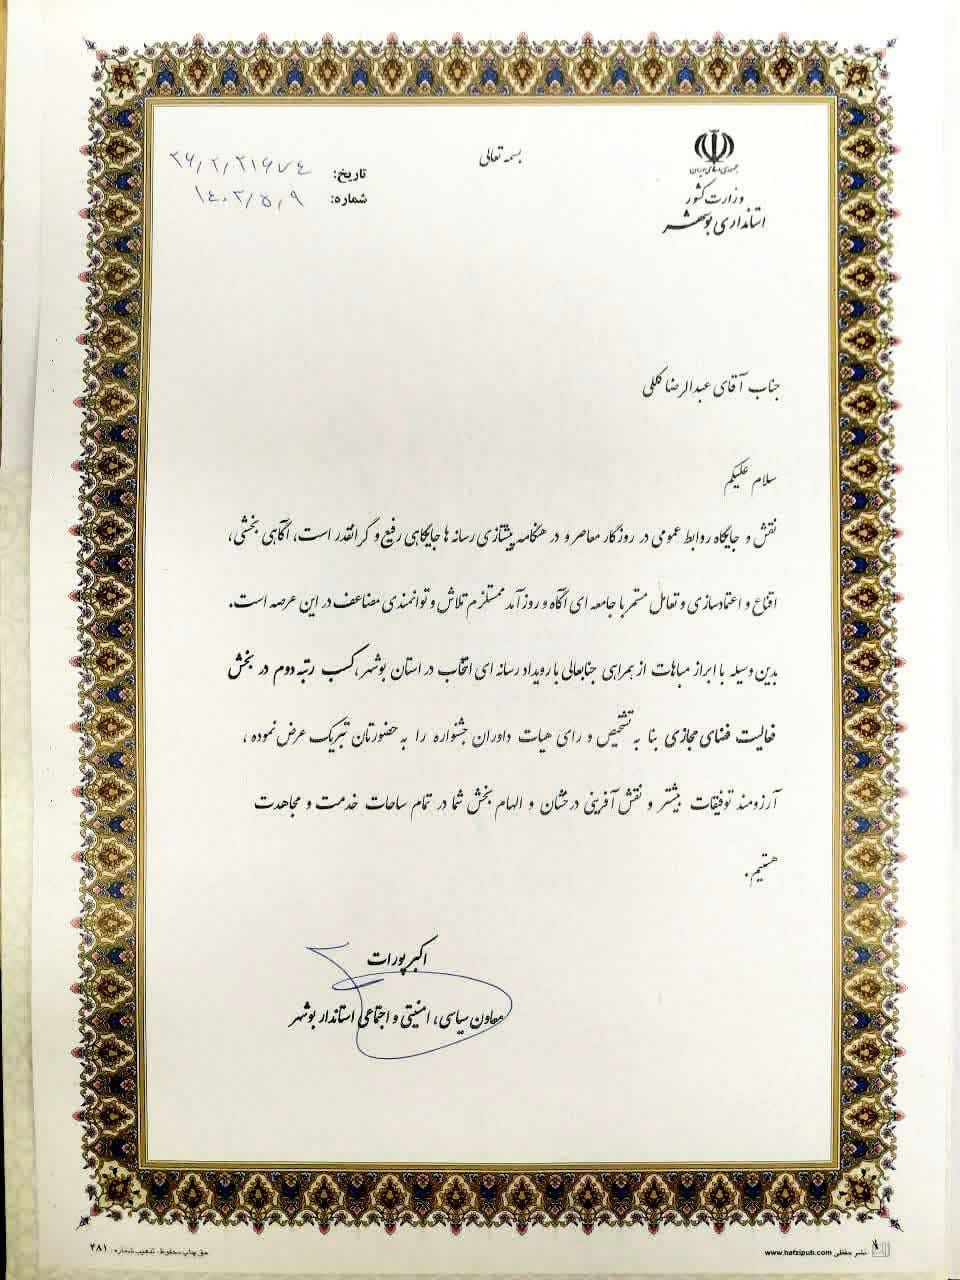 بسمه تعالی
جمهوری اسلامی ایران
وزارت کشور
استانداری بوشهر
تاریخ: ۲۶/۲/۲۱۶۷۴
شماره: ۱۴۰۲/۵/۹
جناب آقای عبدالرضا کللی
سلام علیکم
نقش و جایگاه روابط عمومی در روزگار معاصر و در هنگامه پیشتازی رسانه ها جایگاهی رفیع و گرانقدر است، آگاهی بخشی،
اقناع و اعتمادسازی و تعامل مستمر با جامعه ای آگاه و روزآمد مستلزم تلاش و توانمندی مضاعف در این عرصه است.
بدین وسیله با ابراز مباهات از همراهی جنابعالی با رویداد رسانه ای انتخاب در استان بوشهر، کسب رتبه دوم در بخش
فعالیت فضای مجازی بنا به تشخیص و رای هیات داوران جشنواره را به حضورتان تبریک عرض نموده ،
آرزومند توفیقات بیشتر و نقش آفرینی درخشان و الهام بخش شما در تمام ساحات خدمت و مجاهدت
هستیم.
اکبر پورات
معاون سیاسی، امنیتی و اجتماعی استاندار بوشهر
نشر حفظی www.hafzipub.com
حق چاپ محفوظ - تذهیب شماره: ۴۸۱